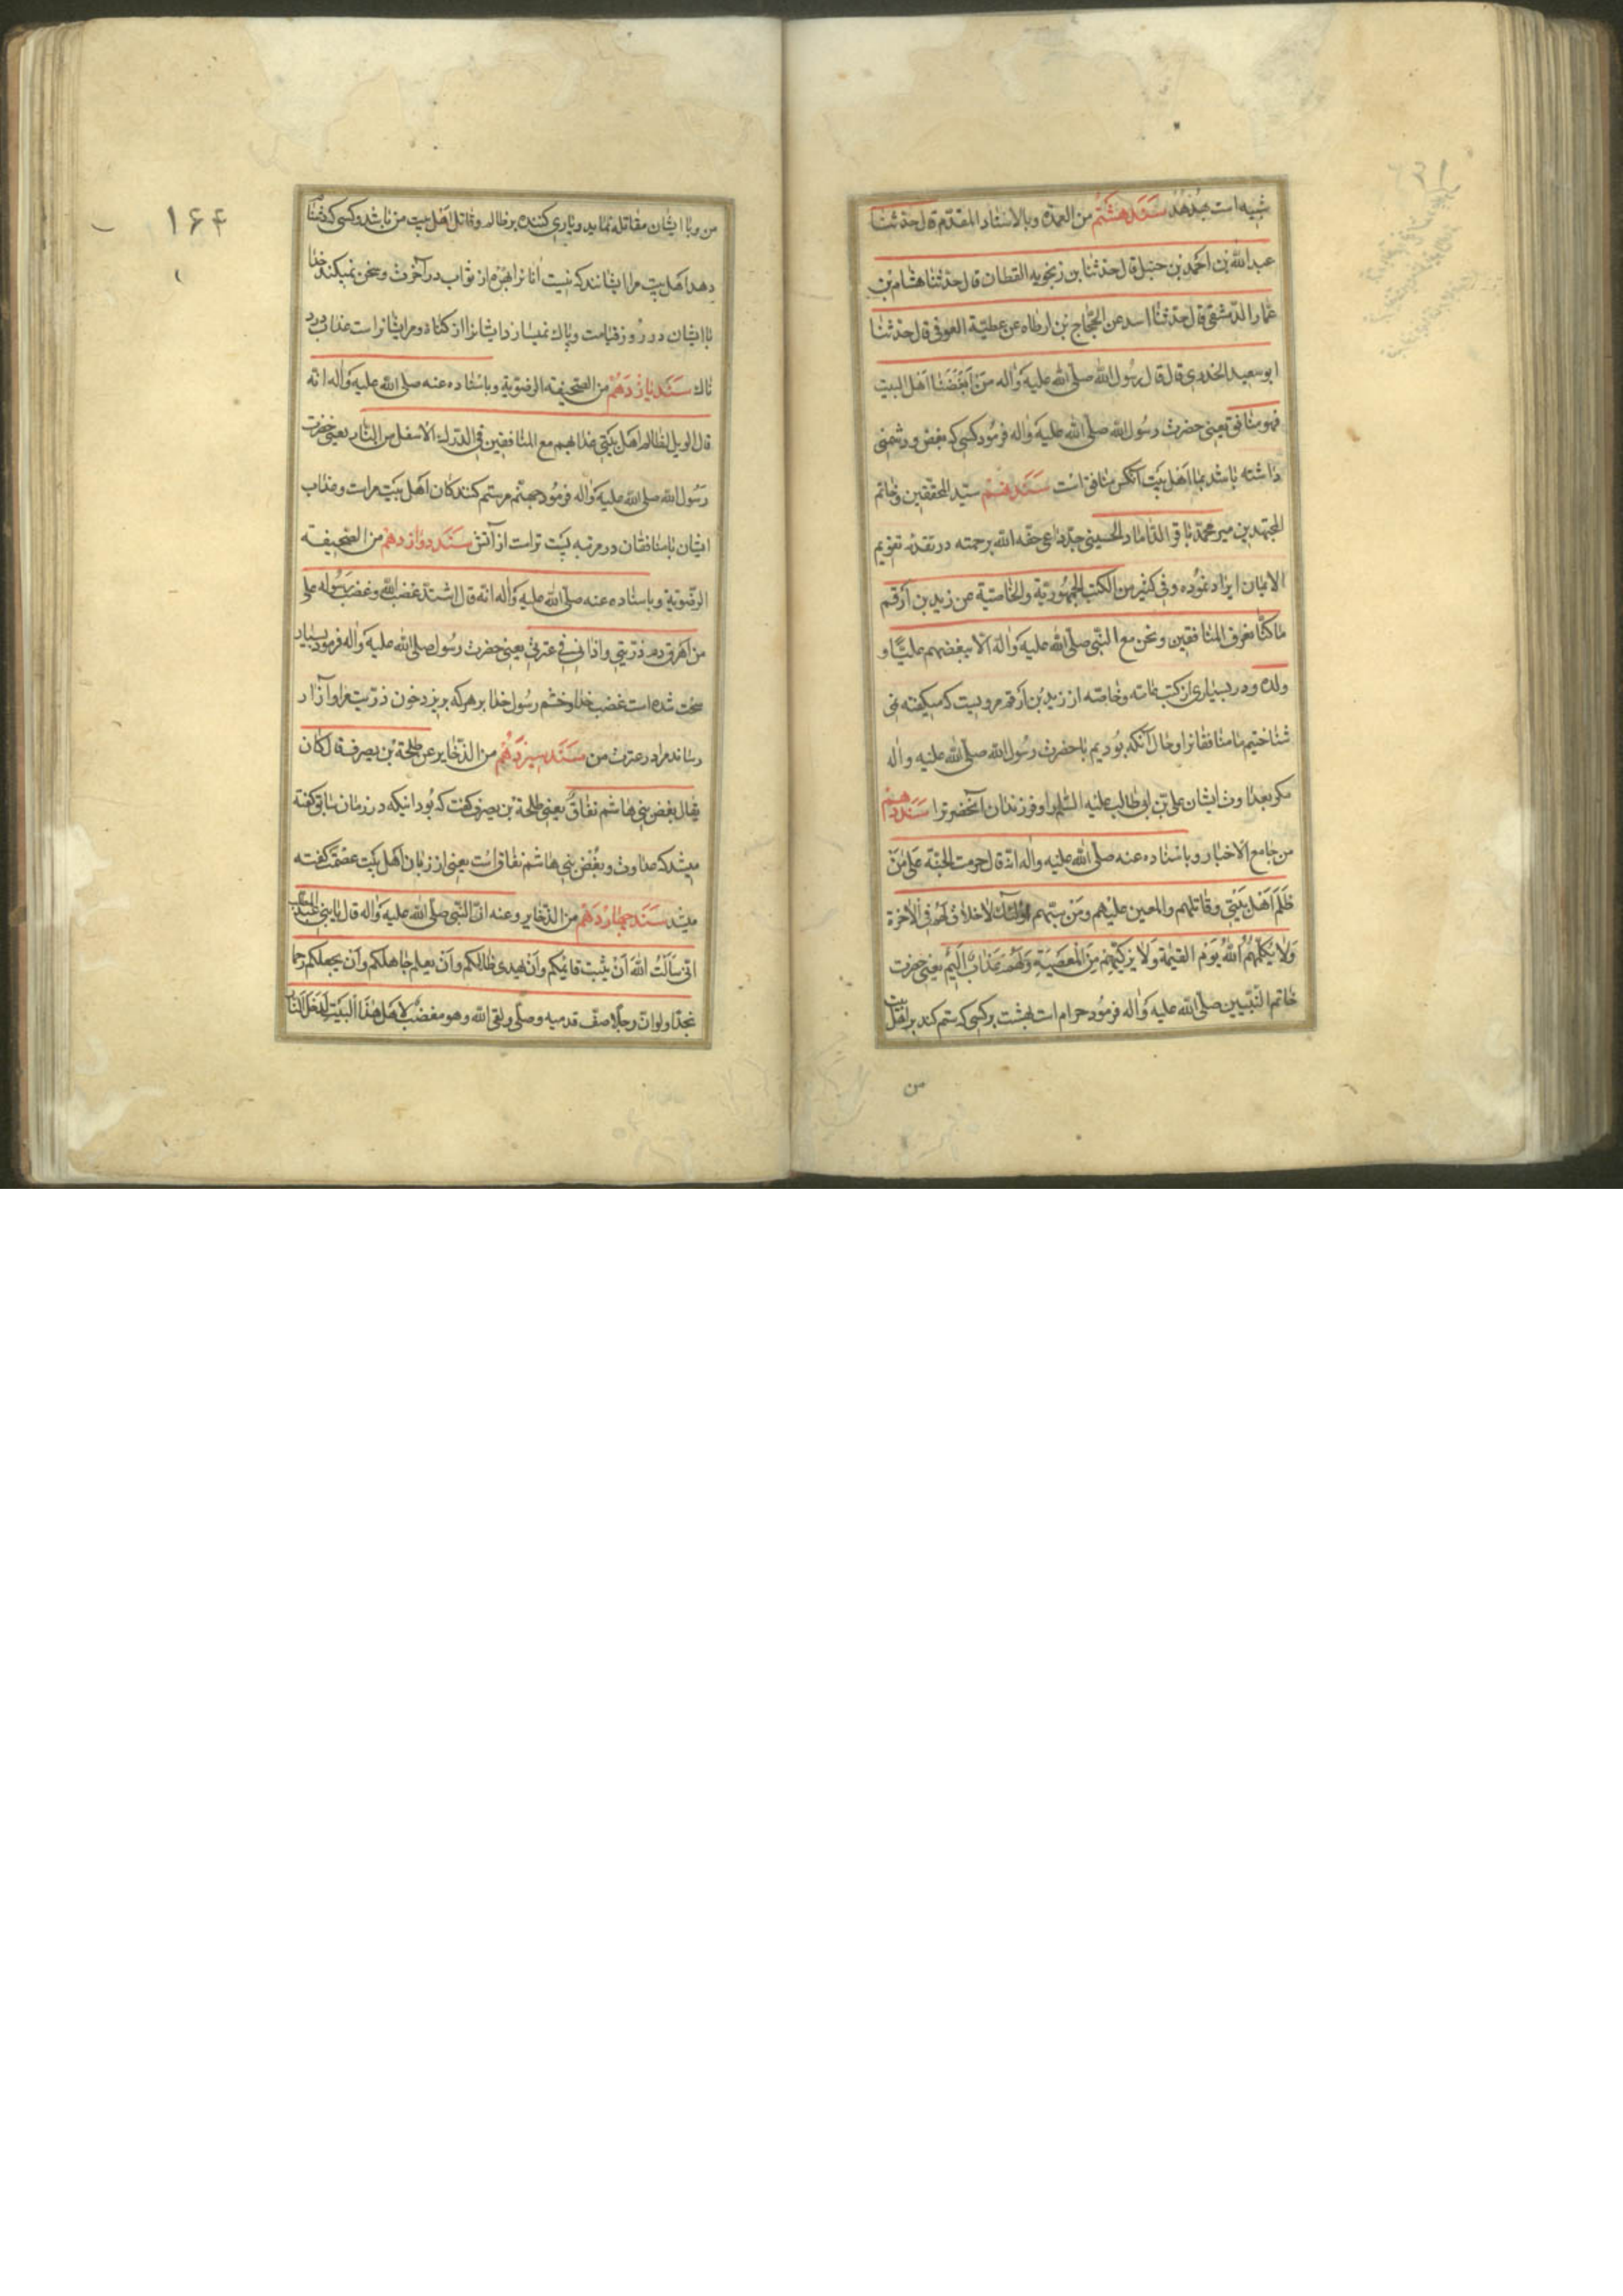 شبیه است بجد هُد سَنَد هشتم من العمدة وبالاسناد المقدّم قال حدّثنا
عبد الله بن احمد بن حنبل قال حدّثنا بن زنجویه القطان قال حدّثنا هشام بن
عمار الدّمشقی قال حدّثنا اسد عن الحجّاج بن ارطاه عن عطیّة العوفی قال حدّثنا
ابو سعید الخدری قال قال رسُول الله صلّی الله علیه وَاله مَنْ اَبْغَضَنا اَهْل البیت
فهو منافق یعنی حضرت رسُول الله صلّی الله علیه وَاله فرمُود کسی که بغض و دشمنی
داشته باشد بما اَهْل بَیت آنکس منافق است سَنَد نهُم سیّد المحققین و خاتم
المجتهدین میر محمّد باقر الدّاماد الحسینی جدّ داعی حفّه الله برحمته در تقدمهٔ تقویم
الایمان ایراد نمُوده وفی کثیر من الکتب الجمهُوریّة والخاصّیة عن زید بن اَرْقم
ما کنّا نعرف المنافقین ونحن مع النّبی صلّی الله علیه وَاله الّا ببغضهم علیّاً و
ولده و در بسیاری از کتب عامّه و خاصّه از زید بْن اَرْقم مرویست که میگفته نمی
شناختیم ما منافقانرا و حال آنکه بُودیم با حضرت رسُول الله صلّی الله علیه واله
مکر بعداوت ایشان علی بْن ابو طالب علیْه السّلم را و فرزندان آنحضرترا سَنَد دهم
من جامع الاخبار وباسناده عنه صلّی الله علیه واله انّه قال حرمت الجنّة عَلی مَنْ
ظَلَمَ اَهْل بَیْتی وقاتلهم والمعین علیْهم ومَنْ سبّهم اُولئکَ لاخلاق لَهُمْ فی الْاخرة
وَلا یُکلّمهُمُ اللهُ یَوْم القیٰمة وَلا یزکّیهِمْ مِنَ الْمعصیَةِ وَلَهُم عَذابٌ اَلیمٌ یعنی حضرت
خاتم النّبیین صلّی الله علیه وَاله فرمُود حرام است بهشت بر کسی که ستم کند بر اهْل بیت
من
۱۶۴
من و با ایشان مقاتله نماید و یاری کننده بر ظالم و قاتل اَهْل بیت من باشد و کسی که دشنام
دهد اهَل بیت مرا ایشانند که نیست اٰنانرا بهرهٔ از ثواب در آخرت و سخن نمیکند خدا
با ایشان در رُوز قیامت و پاک نمیسازد ایشانرا از کناه و مر ایشانراست عذاب درد
ناک سَنَد یازدَهُمْ من الصّحیفة الرضویّة وباسناده عنه صلی الله علیه وَاله انّه
قال الویل لظالم اهَل بَیْتی عذابهم مع المنافقین فی الدّرک الاسفل من النّار یعنی حضرت
رَسُول الله صلی الله علیه وَاله فرمُود جهنّم مر ستم کنندکان اَهَل بیَت مراست و عذاب
ایشان با منافقان در مرتبه پَست تر است از آتش سَنَد دوازدهم من الصّحیفة
الرضّویّة وباسناده عنه صلّی الله علیه وَاله انّه قال اشتدّ غضب الله وغضب رَسُوله علی
من اَهرق دم ذرّیتی واذانی فی عترتی یعنی حضرت رسُول صلی الله علیه وَاله فرمود بسیار
سخت شده است غضب خدا و خشم رسُول خدا بر هر که بریزد خون ذرّیت مرا و آزار
رساند مرا در عترت من سَنَد سیزدَهُم من الذّخایر عن طلحة بْن بصرف قال کان
یقال بغض بنی هاشم نفاقٌ یعنی طلحة بْن بصرف کفت که بُود اینکه در زمان سابق کفته
میشد که عداوت و بغُض بنی هاشم نفاق است یعنی از زبان اهَل بیَت عصْمَت کفته
میشد سَنَد چهاردَهُم من الذّخایر وعنه انّ النّبی صلّی الله علیه وَاله قال یا بنی عبد المطّلب
انّی سَاَلتُ اللهَ اَنْ یثبت قایمکم وَاَنْ یهدی ظالکم وَاَن یعلم جاهلکم وَاَن یجعلکم رحما
نجداً ولو انّ رجلاً صفّ قدمیه وصلّی ولقی الله وهو مغضب لِاَهل هٰذَا الْبَیْتِ لَدَخَلَ النّار